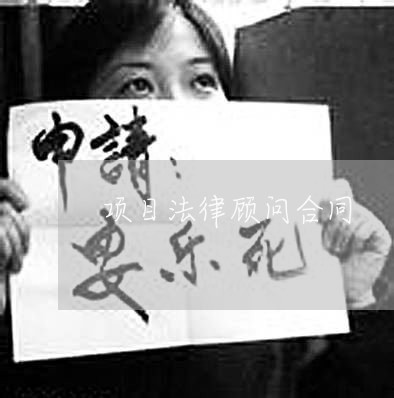 申請:
项目法律顾问合同
要乐死